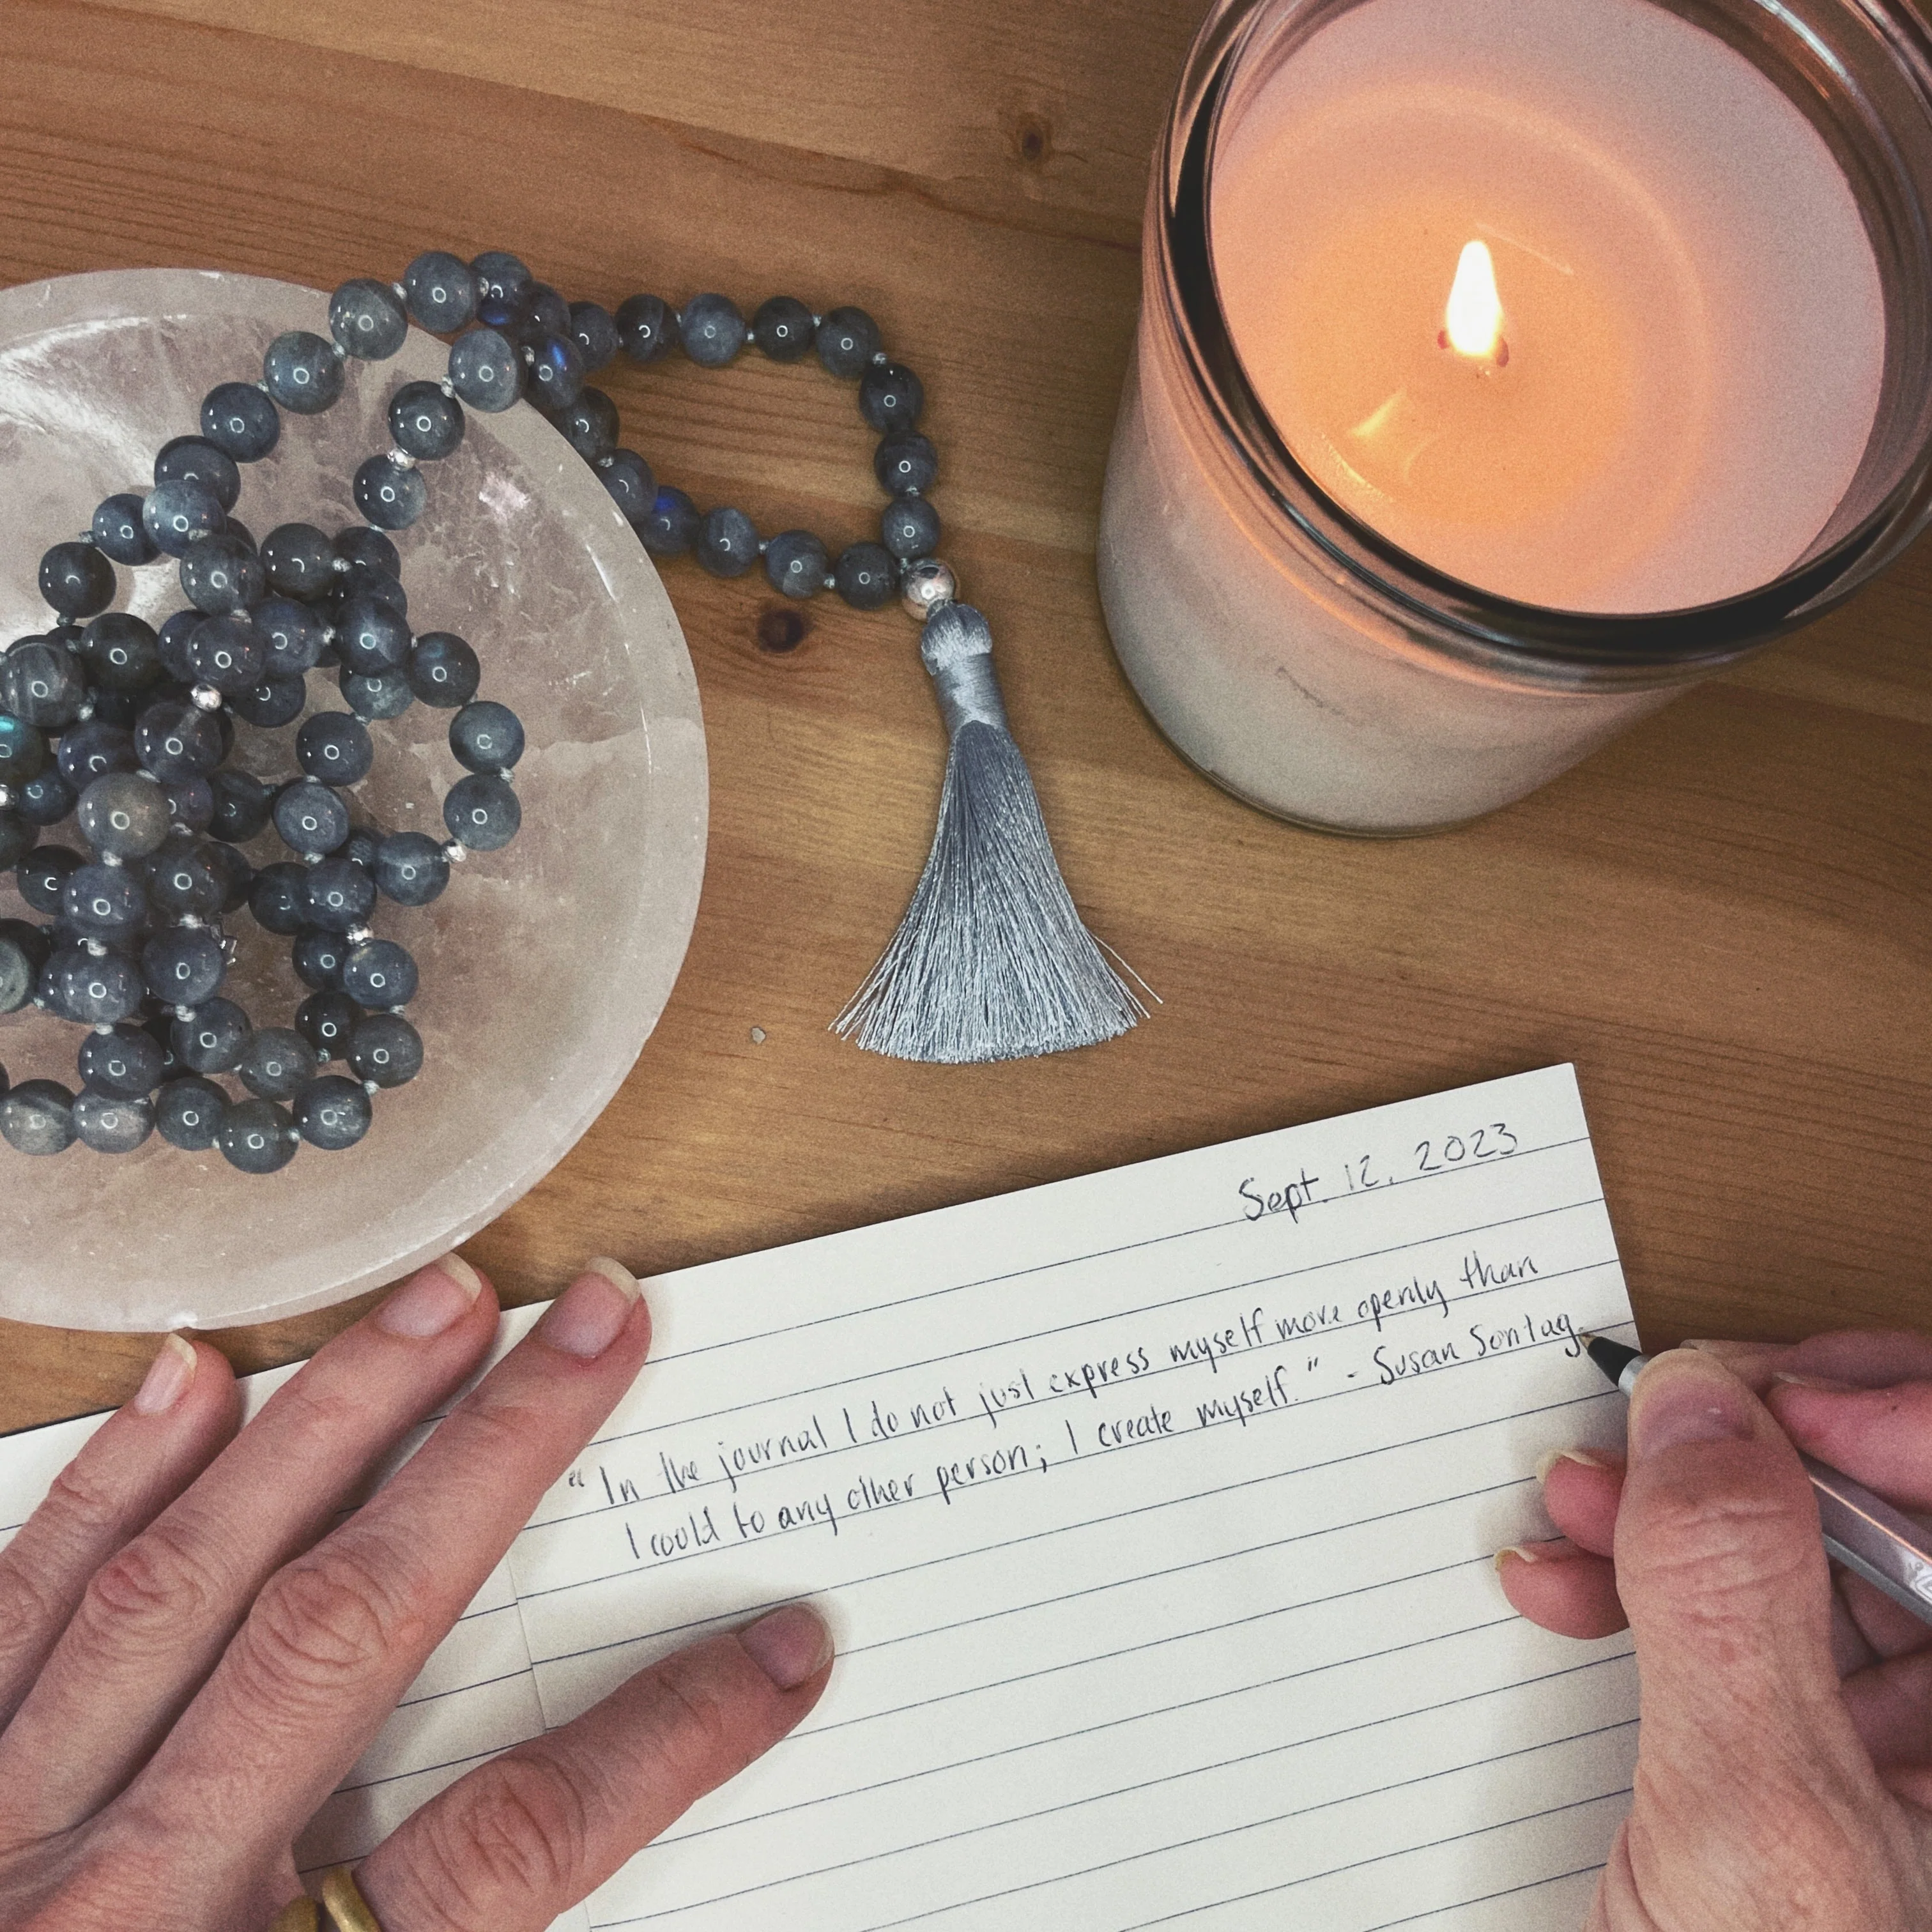 Sept. 12, 2023
"In the journal I do not just express myself more openly than
I could to any other person; I create myself." - Susan Sontag.